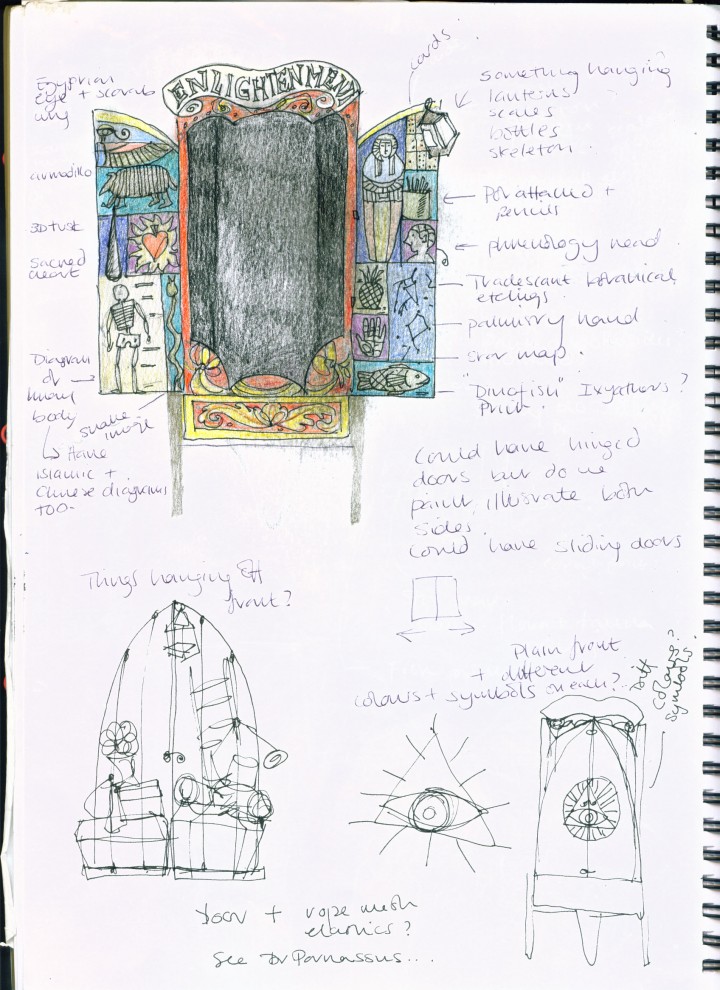 ENLIGHTENMENT
cards
Egyptian
eye + scarab
wing
armadillo
3D tusk
Sacred
heart
Diagram
of
human
body
Have
islamic +
Chinese diagrams
too.
snake
image
Something hanging
lanterns
scales
bottles
skeleton.
Pot attached +
pencils
phrenology head.
Tradescant botanical
etchings.
palmistry hand
star map.
"Dinofish"
Could have hinged
doors but do we
paint, illustrate both
sides.
Could have sliding doors
Things hanging off
front?
plain front
+ different
colours + symbols on each?
diff
colours?
symbols.
door + rope mesh
elastics?
See Dr Parnassus...